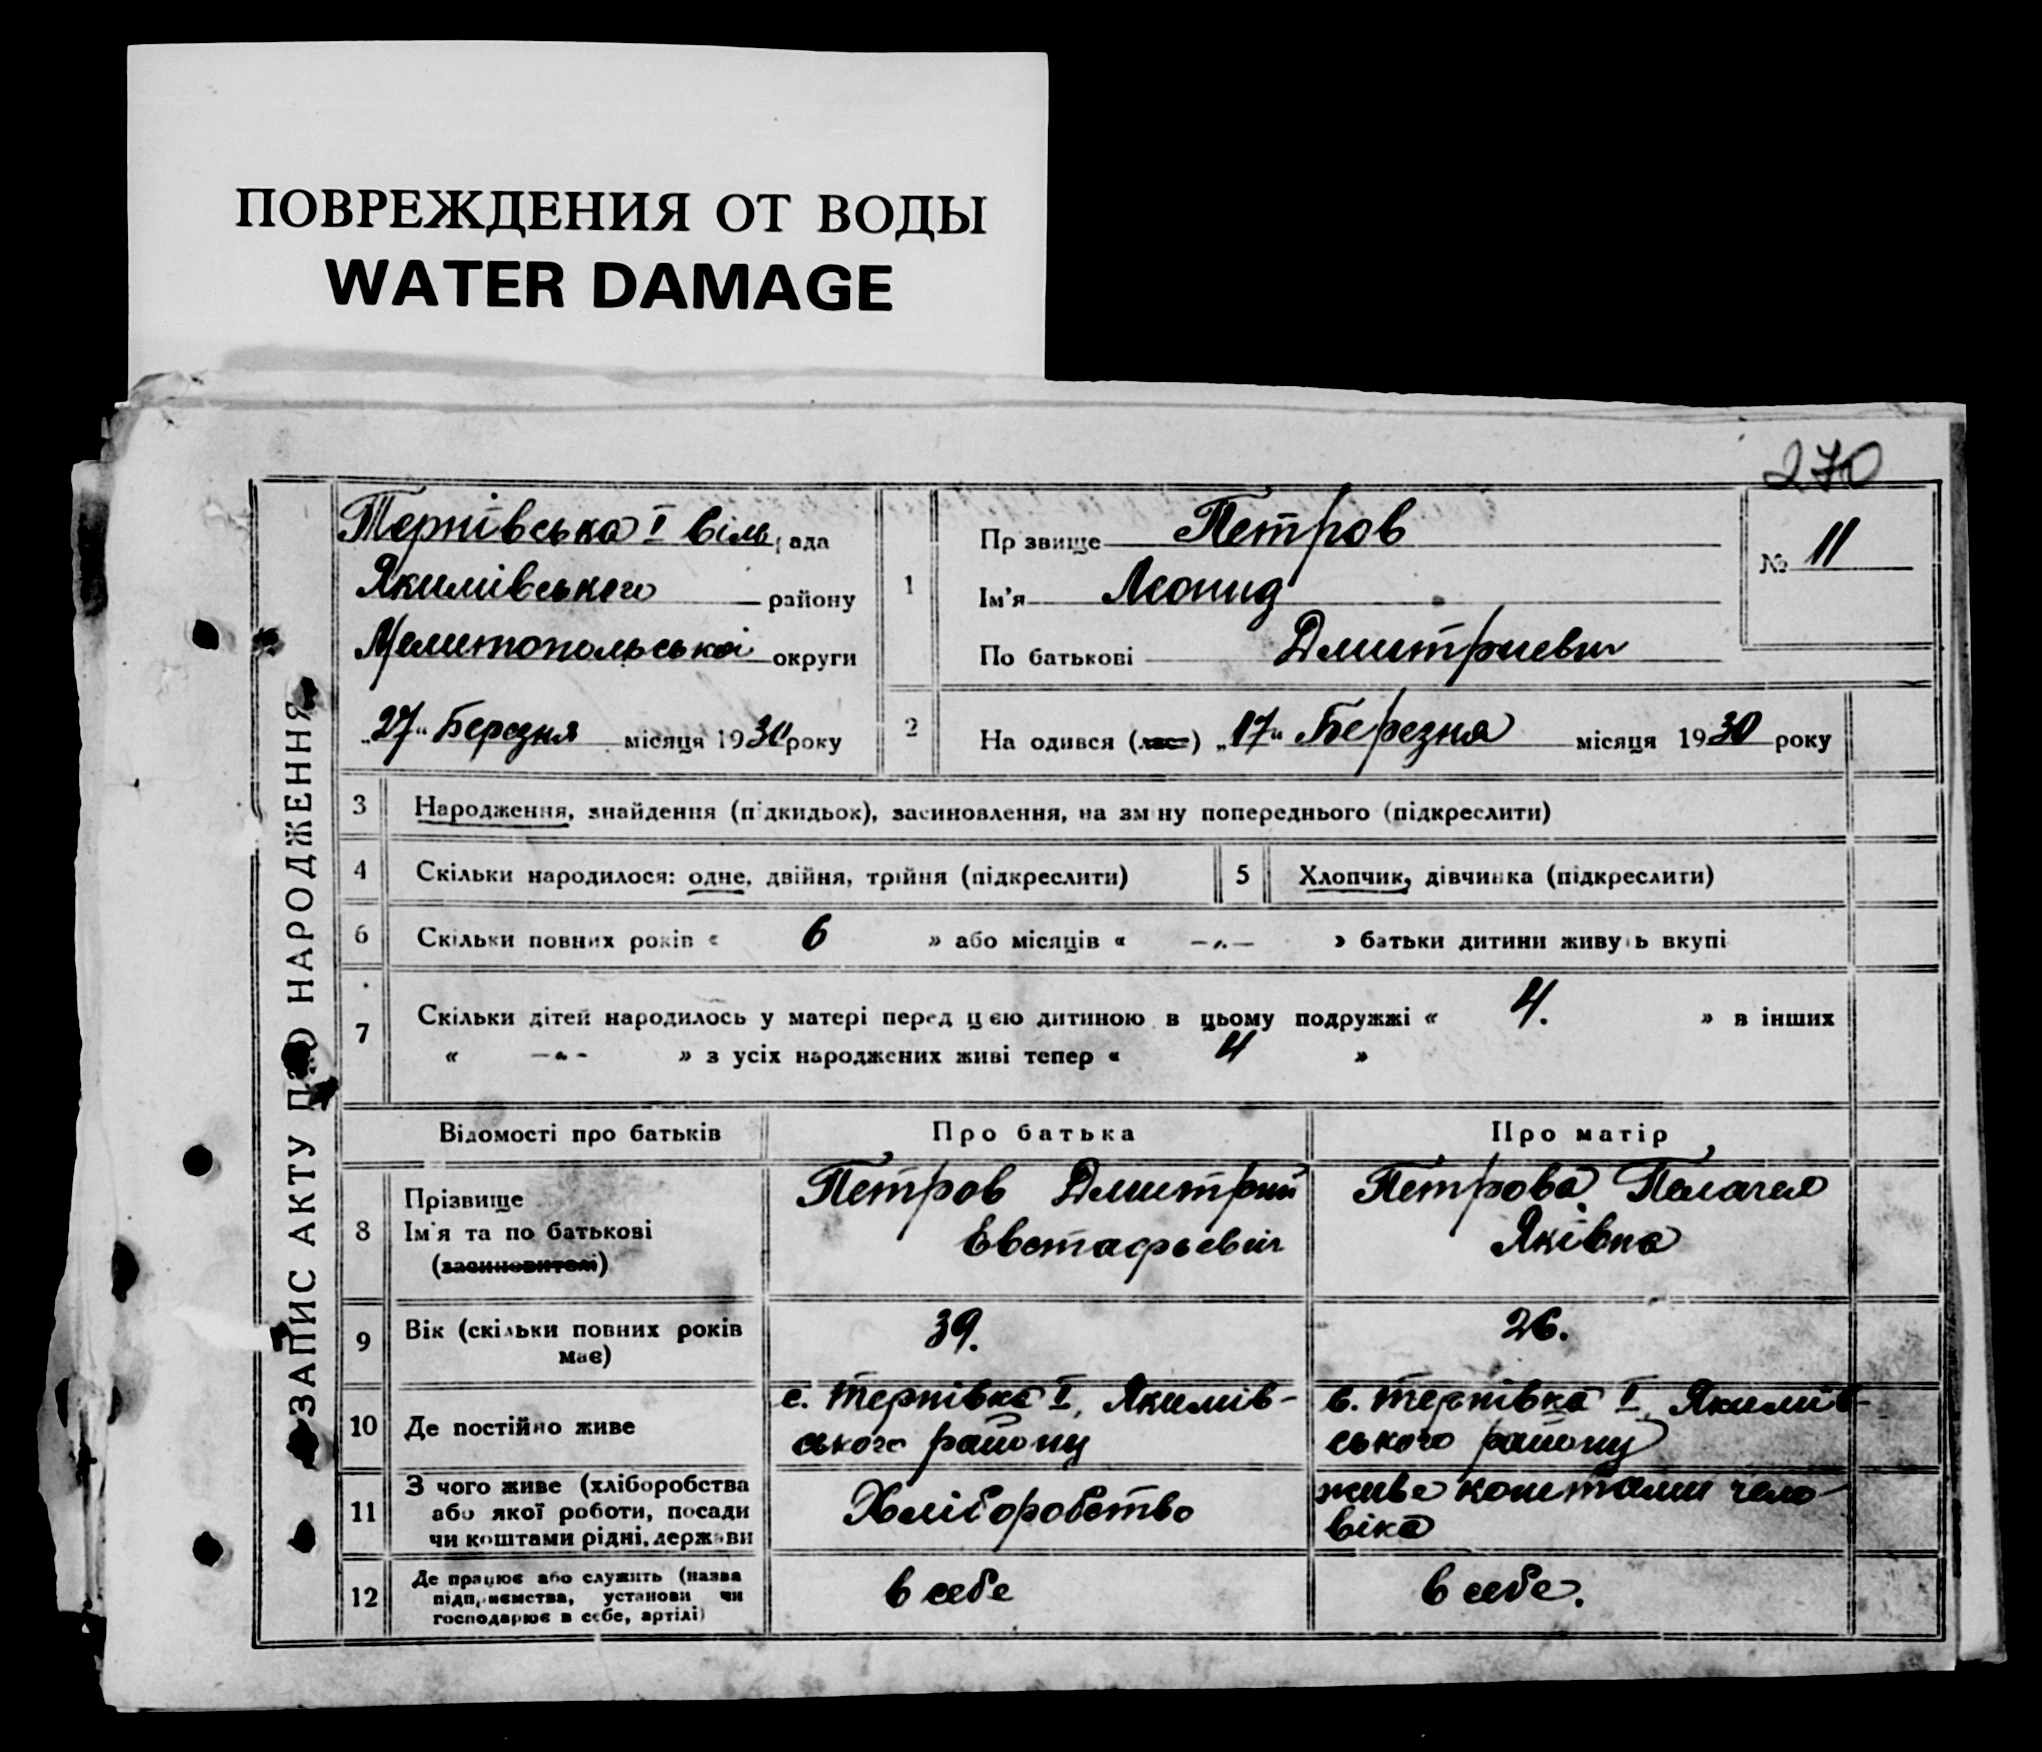 ПОВРЕЖДЕНИЯ ОТ ВОДЫ
WATER DAMAGE
270
ЗАПИС АКТУ ПРО НАРОДЖЕННЯ
Тернівська I віль рада
Якимівського району
Мелитопольської округи
„27“ Березня місяця 1930 року
1
Прізвище Петров
Ім'я Леонид
По батькові Дмитриевич
№ 11
2
Народився (лась) „17“ Березня місяця 1930 року
3 Народження, знайдення (підкидьок), засиновлення, на зміну попереднього (підкреслити)
4 Скільки народилося: одне, двійня, трійня (підкреслити) 5 Хлопчик, дівчинка (підкреслити)
6 Скільки повних років « 6 » або місяців « –„– » батьки дитини живуть вкупі
7 Скільки дітей народилось у матері перед цією дитиною в цьому подружжі « 4. » в інших
« –„– » з усіх народжених живі тепер « 4 »
Відомості про батьків Про батька Про матір
8 Прізвище
Ім'я та по батькові
(засиновителі)
Петров Дмитрий
Евстафьевич
Петрова Пелагея
Яківна
9 Вік (скільки повних років
має)
39.
26.
10 Де постійно живе
с. Тернівка I, Якимів-
ського району
в. Тернівка I, Якимів-
ського району
11 З чого живе (хліборобства
або якої роботи, посади
чи коштами рідні, держави
Хліборобство
живе коштами чело-
віка
12 Де працює або служить (назва
підприємства, установи чи
господарює в себе, артілі)
в себе
в себе.